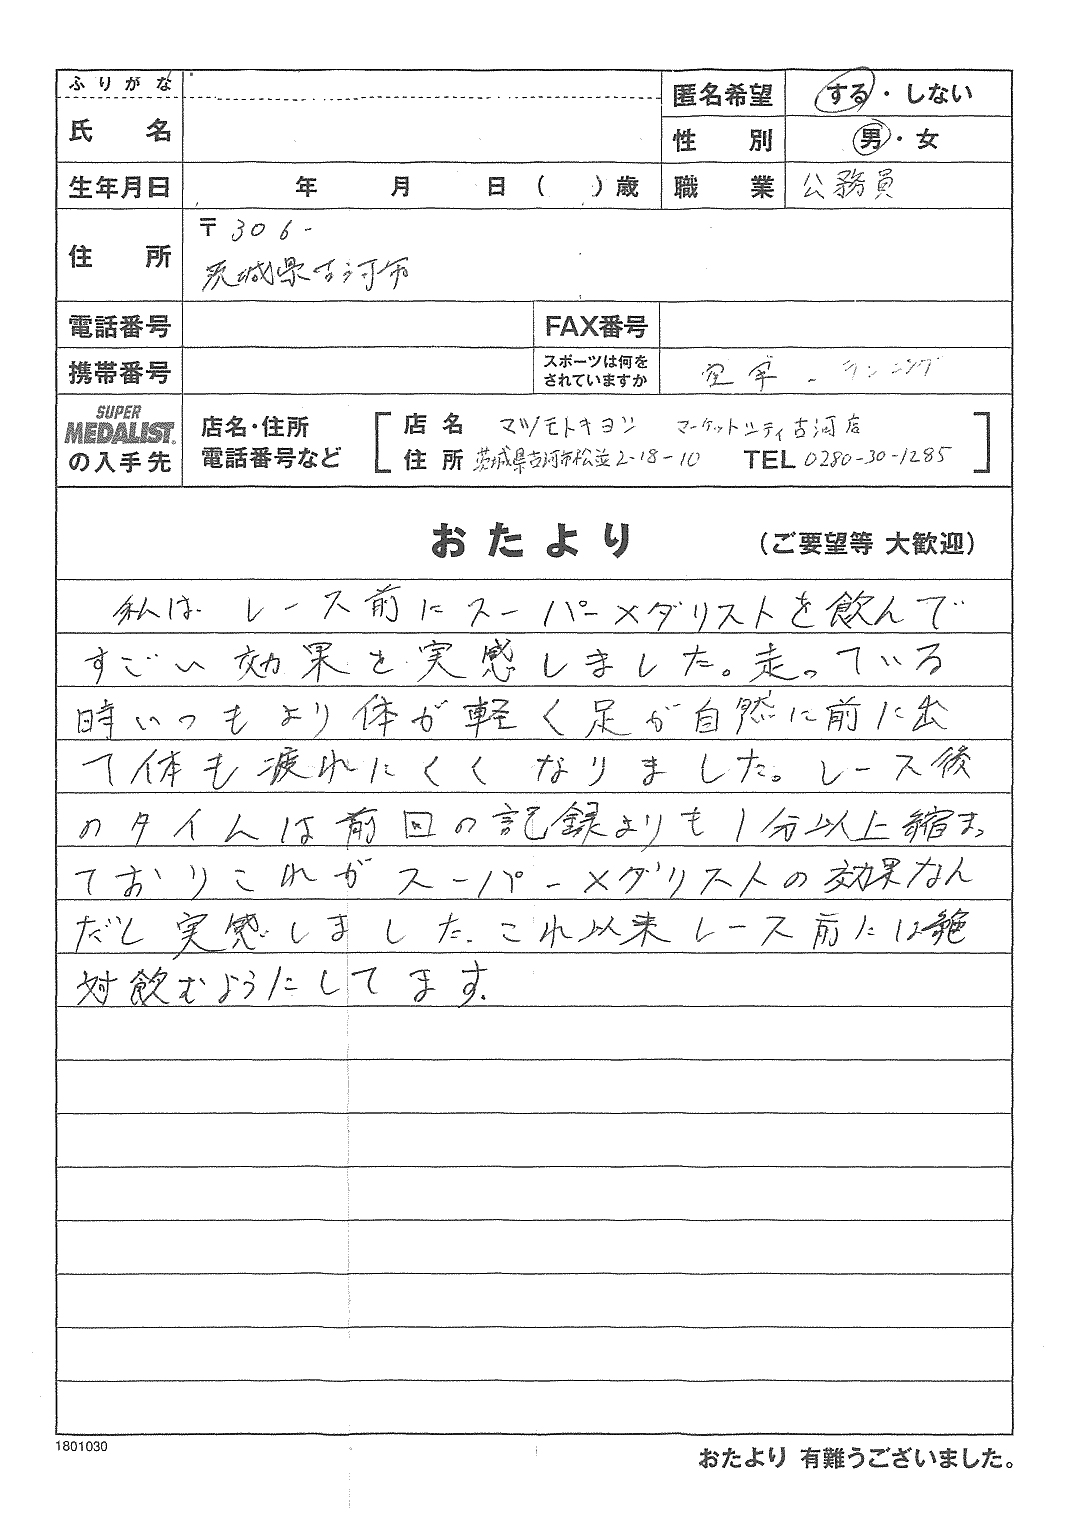 ふりがな
氏名
匿名希望 する・しない
性別 男・女
生年月日 年 月 日( )歳 職業 公務員
住所 〒306-
茨城県古河市
電話番号 FAX番号
携帯番号 スポーツは何をされていますか ランニング
SUPER MEDALIST の入手先 店名・住所 電話番号など
店名 マツモトキヨシ マーケットシティ古河店
住所 茨城県古河市松並2-18-10 TEL 0280-30-1285
おたより (ご要望等 大歓迎)
私は レース前にスーパーメダリストを飲んで
すごい効果を実感しました。走っている
時いつもより体が軽く足が自然に前に出
て体も疲れにくくなりました。レース後
のタイムは前回の記録よりも1分以上縮まっ
ておりこれがスーパーメダリストの効果なん
だと実感しました。これ以来レース前には絶
対飲むようにしてます。
1801030
おたより 有難うございました。